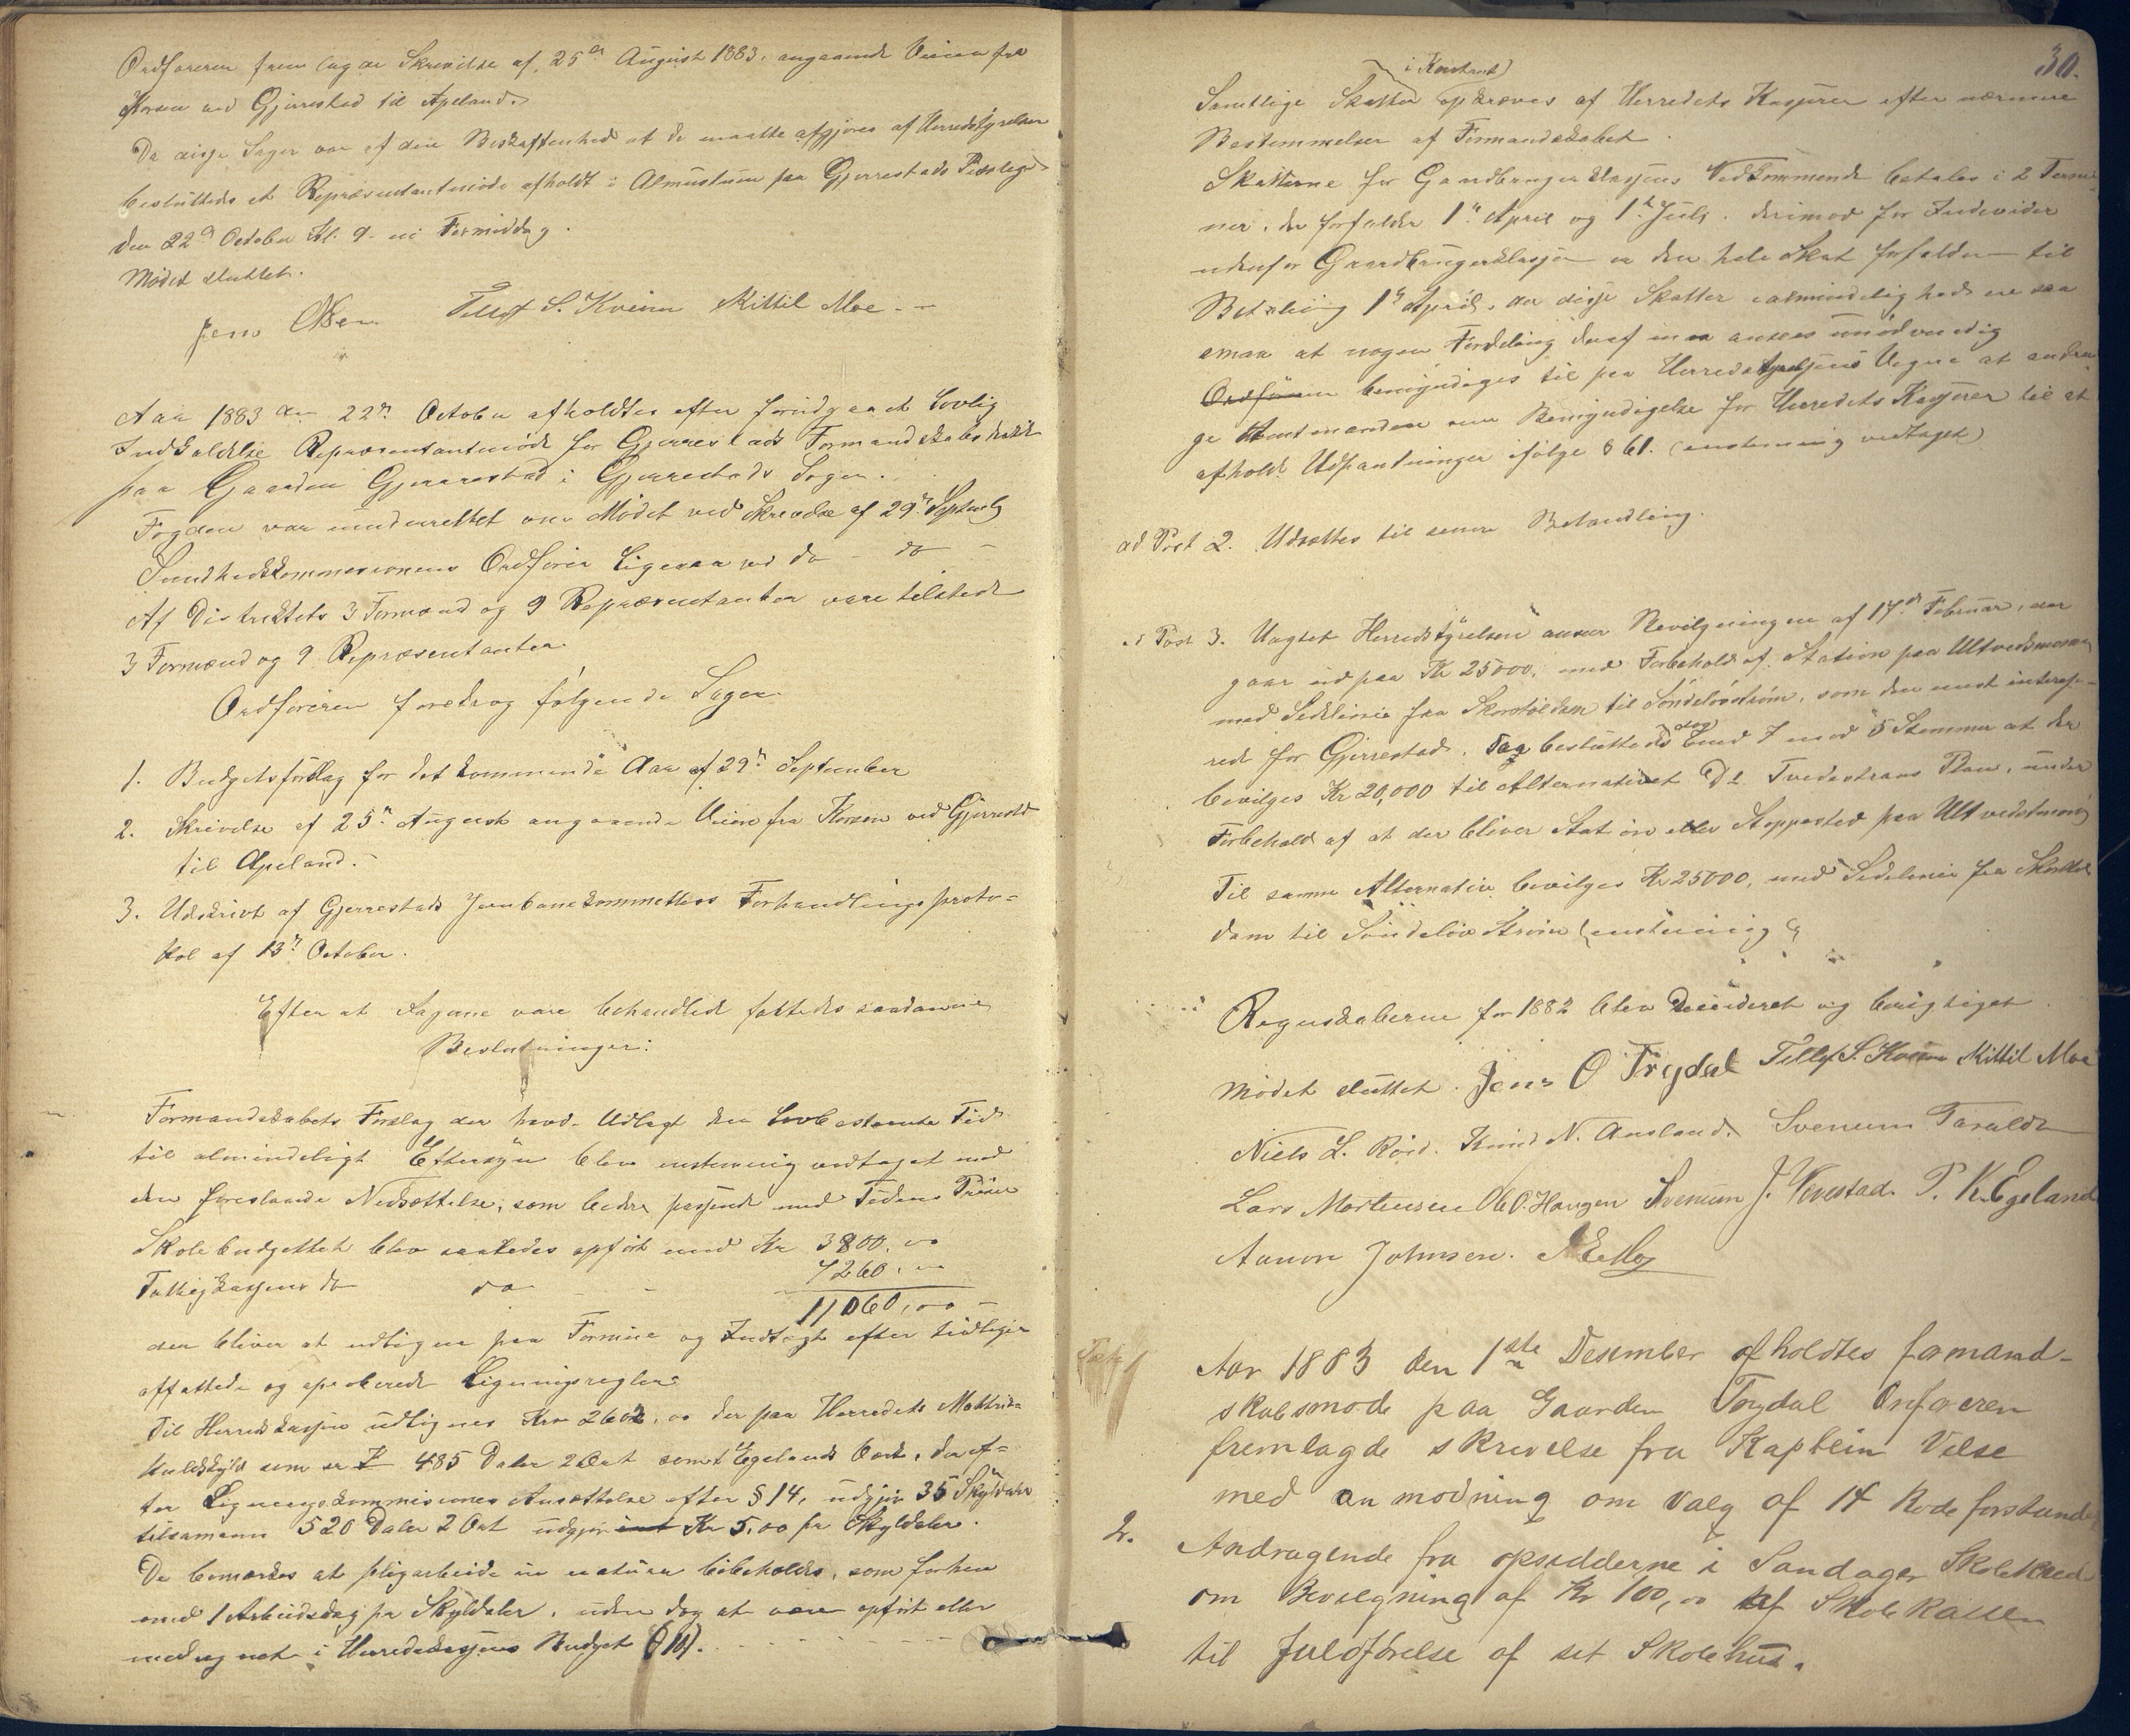 Ordføreren fremlagde Skrivelse af 25de August 1883, angaaende Veien fra
Korsen ved Gjerrestad til Apeland.
Da disse Sager var af den Beskaffenhed at de maatte afgjøres af Herredstyrelsen
besluttedes et Repræsentantmøde afholdt i Almustuen paa Gjerrestads Præstegd
den 22de October Kl. 9 - ni Formiddag.
Mødet sluttet.
Jens Olsen Tellef S. Kveim Kittil Moe. -
Aar 1883 den 22de October afholdtes efter forudgaaet Lovlig
Indkaldelse Repræsentantmöde for Gjerrestads Formandskabsdistrikt
paa Gaarden Gjerrestad i Gjerrestads Sogn.
Fogden var underrettet om Mödet ved Skrivelse af 29de Septemb
Sundhedskommisionens Ordförer ligesaa ved do - do -
Af Distriktets 3 Formænd og 9 Repræsentanter vare tilstede
3 Formænd og 9 Repræsentanter
Ordföreren foredrog følgende Sager
1. Budgetsforslag for det kommende Aar af 29de September
2. Skrivelse af 25de August angaaende Veien fra Korsen ved Gjerrestd
til Apeland. -
3. Udskrivt af Gjerrestads Jernbanekommettees Forhandlingsproto=
kol af 13de October.
Efter at Sagerne vare behandlede fattedes saadanne
Beslutninger:
Formandskabets Forslag der havd. Udlagt den Lovbestemte Tid
til almindeligt Eftersyn blev enstemmig vedtaget med
den foreslaaede Nedsættelse, som bedre passende med Tidens Priser
Skolebudgettet blev saaledes opfört med Kr 3800,00
Fattigkassens do do - - 7260,00
11060,00 -
der bliver at udligne paa Formue og Indtægt efter tidligere
affattede og aproberede Ligningsregler.
Til Herredskassen udlignes Kr 2602,00 der paa Herredets Matrikel
skyld som er 485 Daler 2 Ort samt Egelands Værk, der ef=
ter Ligningskommisionens Ansættelse efter § 14, udgjör 35 Skyldaler
tilsammen 520 Daler 2 Ort udgjör Kr 5,00 pr Skyldaler.
De bemærkes at pligarbeide in natura bibeholdes, som forhen
med 1 Arbeidsdag pr Skyldaler, uden dog at være opfört eller
medregnet i Herredskassens Budget (§ 10).
30.
i Kontant
Samtlige Skatter opkræves af Herredets Kasserer efter nærmere
Bestemmelser af Formandskabet.
Skatterne for Gaardbrugerklassens Vedkommende betales i 2 Termi-
ner, der forfalder 1ste April og 1ste Juli, derimod for Individer
udenfor Gaardbrugerklassen er den hele Skat forfalden til
Betaling 1ste April, da disse Skatter i almindelighed ere saa
smaa at nogen Fordeling deraf maa ansees unödvendig
Ordføreren bemyndiges til paa Herredstyrelsens Vegne at andra-
ge Amtmanden om Bemyndigelse for Herredets Kasserer til at
afholde Udpantninger ifølge § 61. (enstemmig vedtaget)
ad Post 2. Udsættes til senere Behandling.
ad Post 3. Uagtet Herredstyrelsen anser Bevilgningen af 17de Februar, der
gaar ud paa Kr 25000, med Forbehold af Station paa Ultvedtmoen
med Sidelinie fra Skorstöldam til Söndelövström, som den mest interes-
ret for Gjerrestad, besluttedes dog med 7 mod 5 Stemmer at der
bevilges Kr 20,000 til Alternativet D1. Tvedestrans Plan, under
Forbehold af at der bliver Station eller Stoppested paa Ultvedtmoen
Til samme Alternativ bevilges Kr 25000, med Sidelinie fra Skorstöl
dam til Söndeløv Ström (enstemmig)
Regnskaberne for 1882 blev Desideret og berigtiget
Mödet sluttet. Jens O Trydal Tellef S. Kveim Kittil Moe
Niels L. Röed. Knud N. Ausland. Svenum Taralds
Lars Mortensen Ole O. Haugen Svenum J. Vevestad. P. K. Egeland
Aanon Johnsen.
Aar 1883 den 1ste Desember afholdtes formand-
skabsmøde paa Gaarden Trydal Orføreren
fremlagde skrivelse fra Kaptein Velse
med anmodning om valg af 14 Rode forstander
2. Andragende fra opsidderne i Sandager Skolekred
om Bevilgning af Kr 100,00 af Skole kassen
til fuldførelse af set Skolehus.